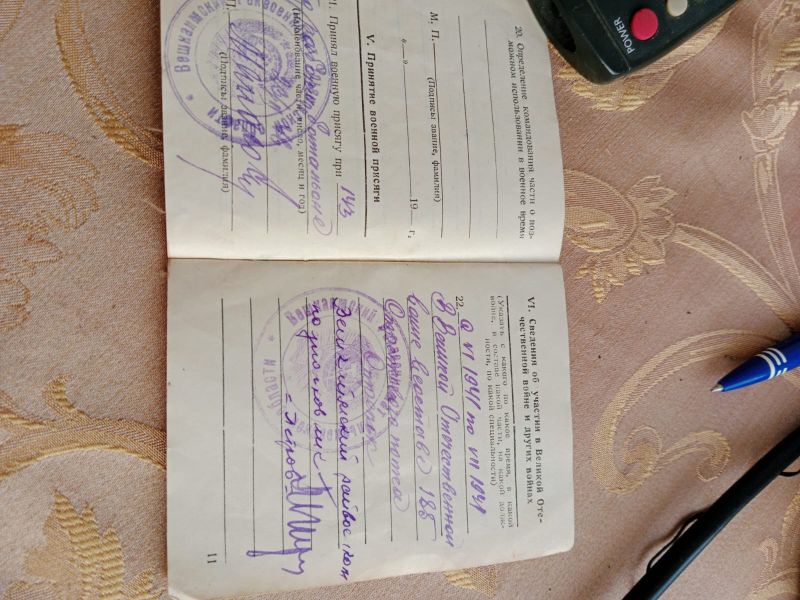 20. Определение командования части о воз-
можном использовании в военное время
М. П.
(Подпись: звание, фамилия)
„ “ 19 г.
V. Принятие военной присяги
21. Принял военную присягу при 143
батальоне
(наименование части, число, месяц и год)
(Подпись: звание, фамилия)
VI. Сведения об участии в Великой Оте-
чественной войне и других войнах
(Указать с какого по какое время, в какой
войне, в составе какой части, на какой долж-
ности, по какой специальности)
22. С VI 1941 по VII 1941
В Великой Отечественной
войне в составе 188
полка
Вешкаймский райвоенком
подполковник
11
POWER